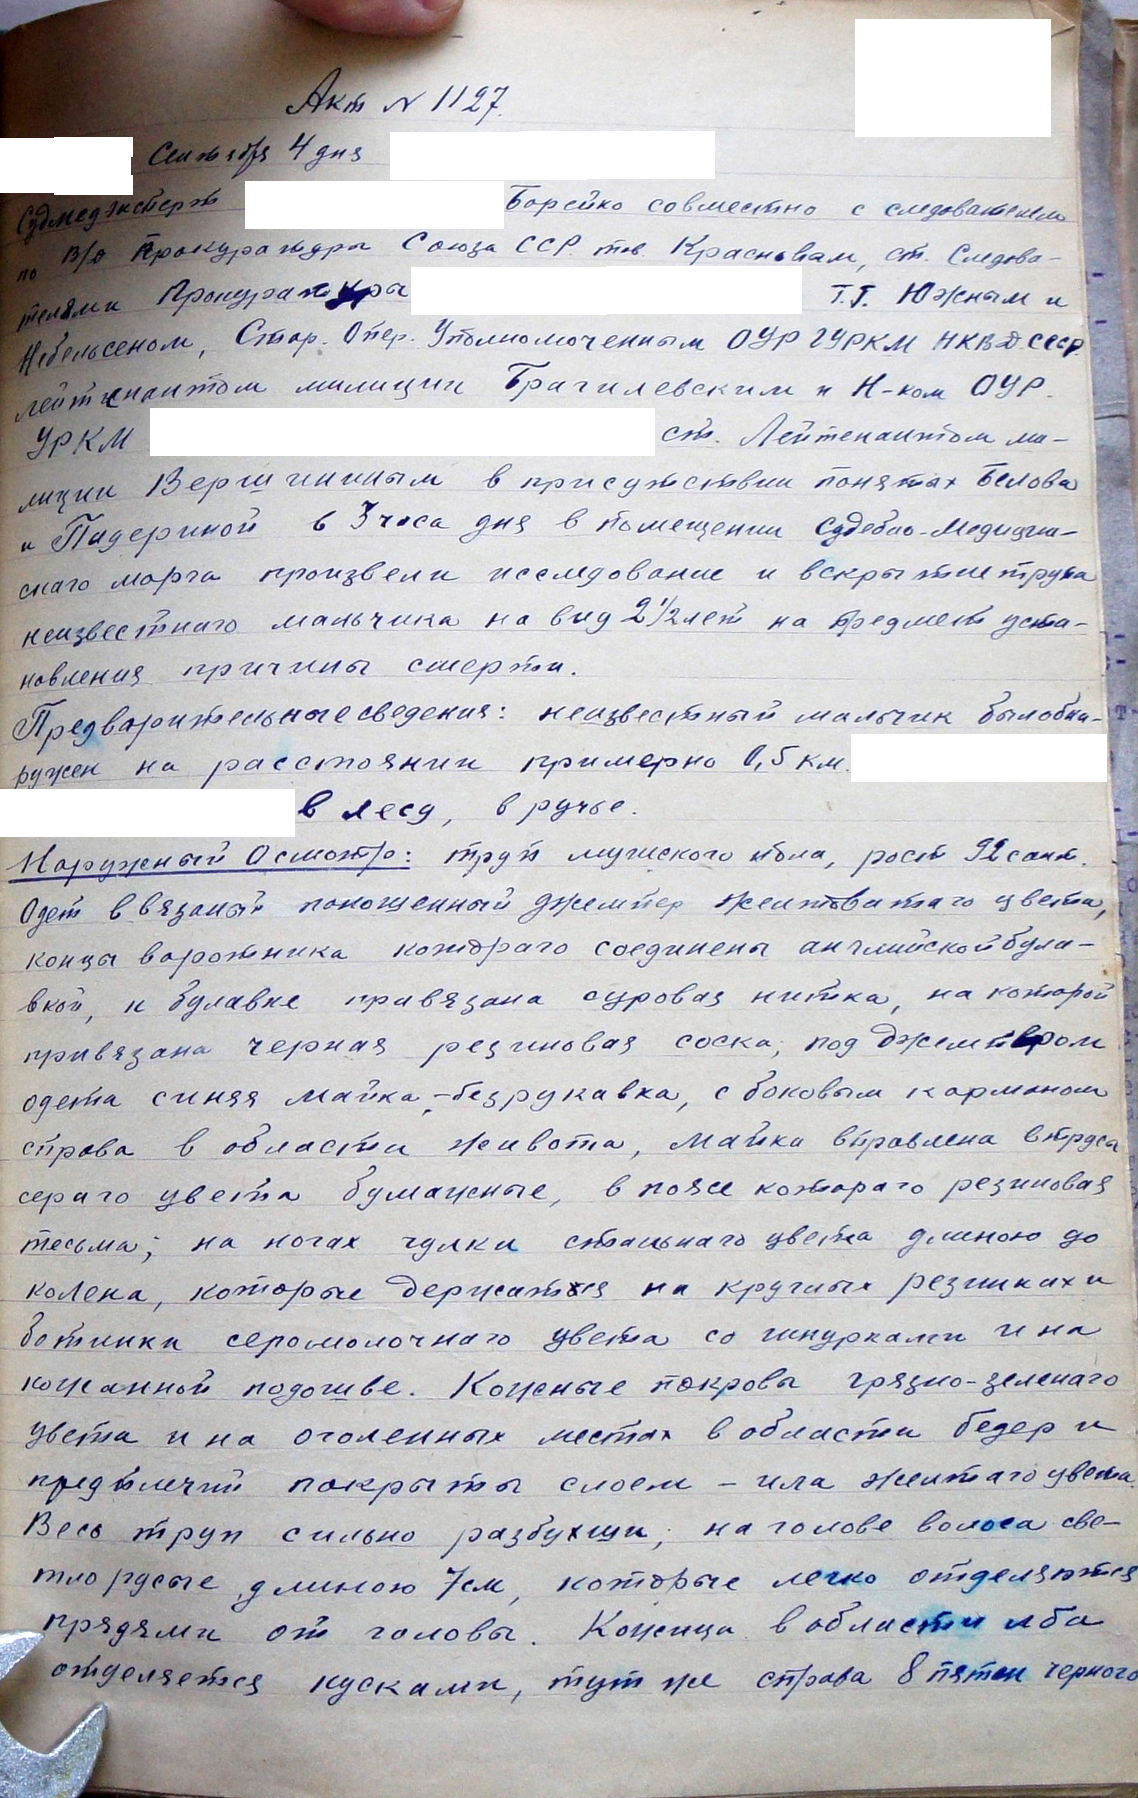 Акт N 1127.
Сентября 4 дня
Судмедэксперт Борейко совместно с следователем
по В/д Прокуратуры Союза ССР. тов. Красновым, ст. Следова-
телями Прокуратуры Т.Т. Южным и
Небельсеном, Стар. Опер. Уполномоченным ОУР ГУРКМ НКВД СССР
лейтенантом милиции Брагилевским и Н-ком ОУР.
УРКМ ст. Лейтенантом ми-
лиции Вершининым в присутствии понятых Белова
и Пидериной в 3 часа дня в помещении Судебно-Медицин-
скаго морга произвели исследование и вскрытие трупа
неизвестнаго мальчика на вид 2 1/2 лет на предмет уста-
новления причины смерти.
Предварительные сведения: неизвестный мальчик был обна-
ружен на расстоянии примерно 0,5 км.
в лесу, в ручье.
Наружный Осмотр: труп мужского пола, рост 92 сант.
Одет в вязаный поношенный джемпер желтоватаго цвета,
концы воротника котораго соединены английской була-
вкой, к булавке привязана суровая нитка, на которой
привязана черная резиновая соска; под джемпером
одета синяя майка-безрукавка, с боковым карманом
справа в области живота, майка вправлена в труса
сераго цвета бумажные, в поясе котораго резиновая
тесьма; на ногах чулки стальнаго цвета длиною до
колена, которые держатся на круглых резинках и
ботинки серомолочнаго цвета со шнурками и на
кожанной подошве. Кожные покровы грязно-зеленаго
цвета и на оголенных местах в области бедер и
предплечий покрыты слоем - ила желтаго цвета.
Весь труп сильно разбухши; на голове волоса све-
тлорусые длиною 7см, которые легко отделяются
прядями от головы. Кожица в области лба
отделяется кусками, тут же справа 8 пятен черного